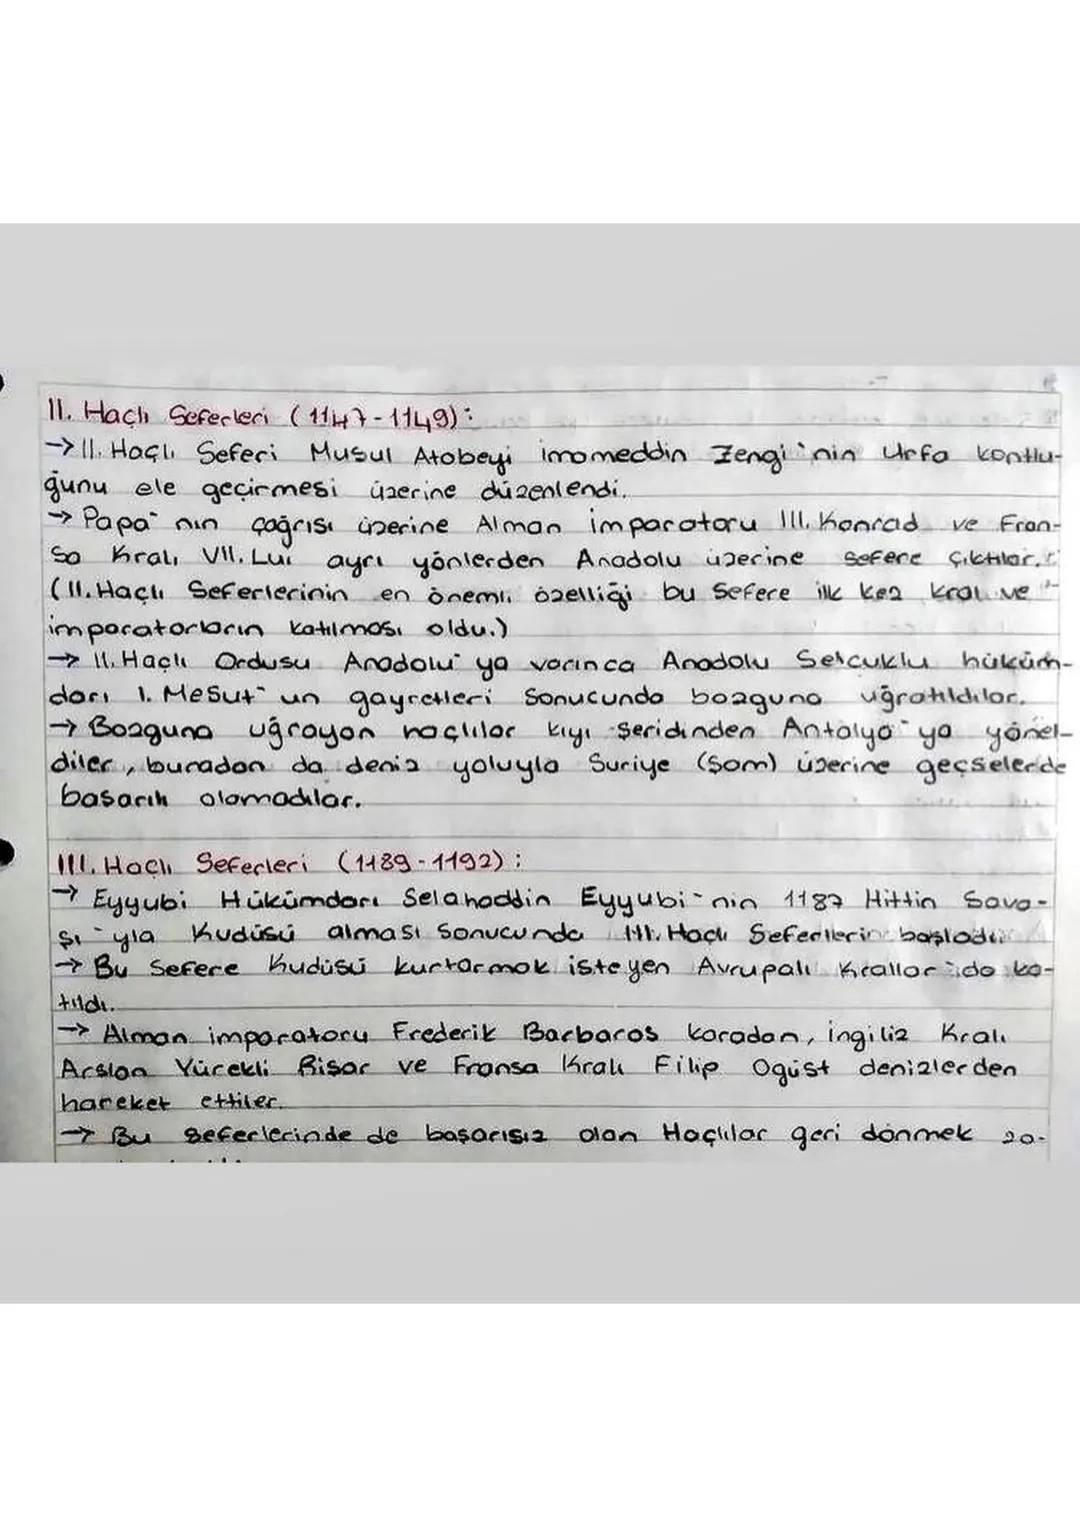 II. Haçlı Seferleri (1147-1149):
→ II. Haçlı Seferi Musul Atabeyi İmameddin Zengi'nin Urfa kontlu-
ğunu ele geçirmesi üzerine düzenlendi.
→ Papa'nın çağrısı üzerine Alman imparatoru III. Konrad ve Fran-
sa Kralı VII. Lui ayrı yönlerden Anadolu üzerine sefere çıktılar.
(II. Haçlı Seferlerinin en önemli özelliği bu sefere ilk kez kral ve
imparatorların katılması oldu.)
→ II. Haçlı Ordusu Anadolu'ya varınca Anadolu Selçuklu hüküm-
darı I. Mesut'un gayretleri sonucunda bozguna uğratıldılar.
→ Bozguna uğrayan haçlılar kıyı şeridinden Antalya'ya yönel-
diler, buradan da deniz yoluyla Suriye (Şam) üzerine geçselerde
başarılı olamadılar.
III. Haçlı Seferleri (1189-1192):
→ Eyyubi Hükümdarı Selahaddin Eyyubi'nin 1187 Hittin Sava-
şı'yla Kudüsü alması sonucunda III. Haçlı Seferleri başladı.
→ Bu sefere Kudüsü kurtarmak isteyen Avrupalı Krallar da ka-
tıldı.
→ Alman imparatoru Frederik Barbaros karadan, İngiliz Kralı
Arslan Yürekli Rişar ve Fransa Kralı Filip Ogüst denizlerden
hareket ettiler.
→ Bu seferlerinde de başarısız olan Haçlılar geri dönmek zo-